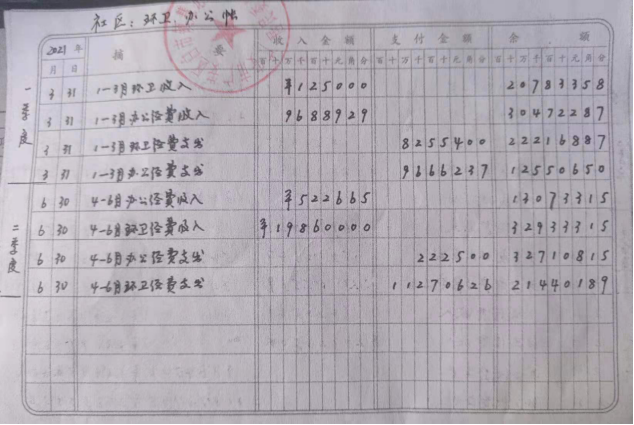 社区：环卫、办公帐
2021年 摘要 收入金额 支付金额 余额
月 日 百十万千百十元角分 百十万千百十元角分 百十万千百十元角分
一季度
3 31 1-3月环卫收入 ¥125000 20783358
3 31 1-3月办公经费收入 9688929 30472287
3 31 1-3月环卫经费支出 8255400 22216887
3 31 1-3月办公经费支出 9666237 12550650
二季度
6 30 4-6月办公经费收入 ¥522665 13073315
6 30 4-6月环卫经费收入 ¥19860000 32933315
6 30 4-6月办公经费支出 222500 32710815
6 30 4-6月环卫经费支出 11270626 21440189